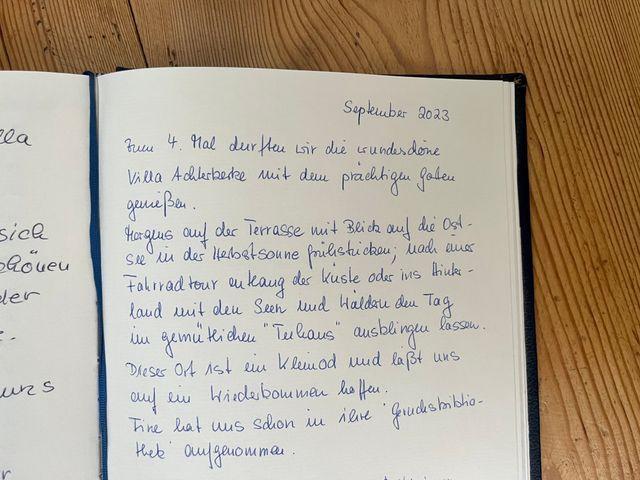 lla
sich
schönen
der
uns
September 2023
Zum 4. Mal durften wir die wunderschöne
Villa Achterkerke mit dem prächtigen Garten
genießen.
Morgens auf der Terrasse mit Blick auf die Ost-
see in der Herbstsonne frühstücken; nach einer
Fahrradtour entlang der Küste oder ins Hinter-
land mit den Seen und Wäldern den Tag
im gemütlichen "Teehaus" ausklingen lassen.
Dieser Ort ist ein Kleinod und läßt uns
auf ein Wiederkommen hoffen.
Fine hat uns schon in ihre 'Geruchsbiblio-
thek' aufgenommen.